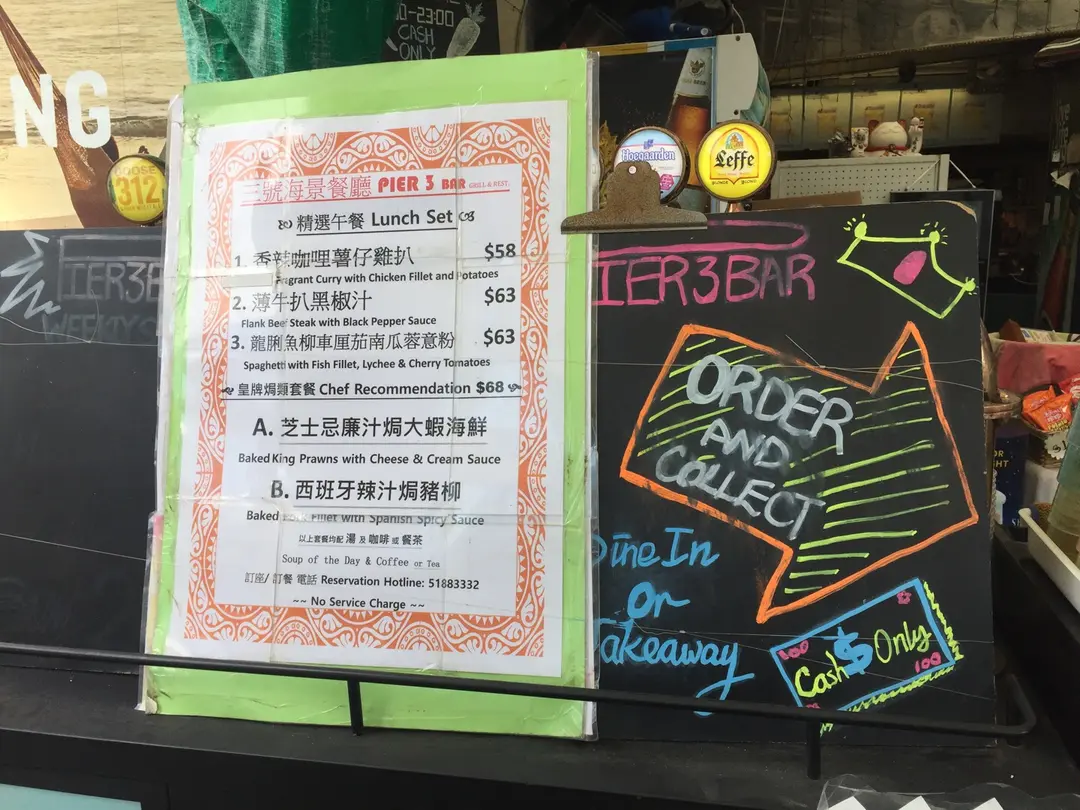 NG
0-23:00
CASH
ONLY
GOOSE
312
Hoegaarden
Leffe
IER3B
WEEKLY S
三號海景餐廳 PIER 3 BAR GRILL & REST.
精選午餐 Lunch Set
1. 香辣咖哩薯仔雞扒 $58
ragrant Curry with Chicken Fillet and Potatoes
2. 薄牛扒黑椒汁 $63
Flank Beef Steak with Black Pepper Sauce
3. 龍脷魚柳車厘茄南瓜蓉意粉 $63
Spaghetti with Fish Fillet, Lychee & Cherry Tomatoes
皇牌焗類套餐 Chef Recommendation $68
A. 芝士忌廉汁焗大蝦海鮮
Baked King Prawns with Cheese & Cream Sauce
B. 西班牙辣汁焗豬柳
Baked Pork Fillet with Spanish Spicy Sauce
以上套餐均配 湯 及 咖啡 或 餐茶
Soup of the Day & Coffee or Tea
訂座/ 訂餐 電話 Reservation Hotline: 51883332
~~ No Service Charge ~~
IER3BAR
ORDER
AND
COLLECT
Dine In
Or
Takeaway
100
Cash $ Only
100